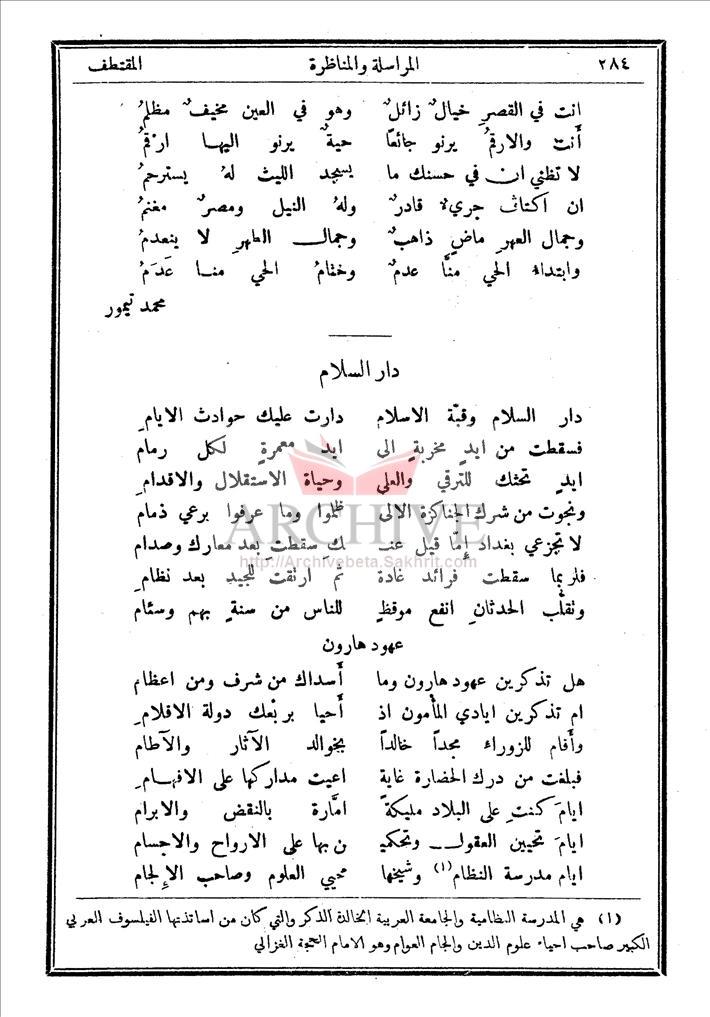 ٢٨٤ المراسلة والمناظرة المقتطف
انت في القصرِ خيالٌ زائلٌ وهو في العين مخيفٌ مظلمُ
أَنت والارقمُ يرنو جائعًا حيةٌ يرنو اليها ارْقمُ
لا تظني ان في حسنك ما يسجد الليث لهُ يسترحمُ
ان اكتاف جريءٌ قادرٌ ولهُ النيل ومصرٌ مغنمُ
وجمال العهرِ ماضٍ ذاهبٌ وجمال الطهرِ لا ينعدمُ
وابتداءُ الحي منَّا عدمٌ وختامُ الحي منا عَدَمُ
محمد تيمور
دار السلام
دار السلام وقبّة الاسلام دارت عليك حوادث الايامِ
فسقطت من ايدٍ مخربةٍ الى ايد معمرةٍ لكل رمام
ايدٍ تحثك للترقي والعلي وحياة الاستقلال والاقدامِ
ونجوت من شرك الجناكزة الالى ظلموا وما عرفوا برعي ذمام
لا تجزعي بغداد إِمَّا قيل عنـ ـكِ سقطتِ بعد معارك وصدام
فلربما سقطت فرائد غادة ثمّ ارتقت للجيد بعد نظامِ
وتقلُّب الحدثانِ انفع موقظٍ للناس من سنةٍ بهم وسئام
عهود هارون
هل تذكرين عهود هارون وما أَسداك من شرف ومن اعظام
ام تذكرين ايادي المأمون اذ أَحيا بربْعك دولة الاقلامِ
وأَقام للزوراء مجداً خالداً بخوالد الآثار والآطام
فبلغت من درك الحضارة غايةٍ اعيت مداركها على الافهامِ
ايامَ كنتِ على البلاد مليكةً امَّارة بالنقض والابرام
ايامَ تحيين العقول وتحكميـ ـن بها على الارواح والاجسام
ايام مدرسة النظام (١) وشيخها محيي العلوم وصاحب الإِلجام
(١) هي المدرسة النظامية والجامعة العربية الخالدة الذكر والتي كان من اساتذتها الفيلسوف العربي
الكبير صاحب احياء علوم الدين والجام العوام وهو الامام الحجة الغزالي
ARCHIVE
http://Archivebeta.Sakhrit.com